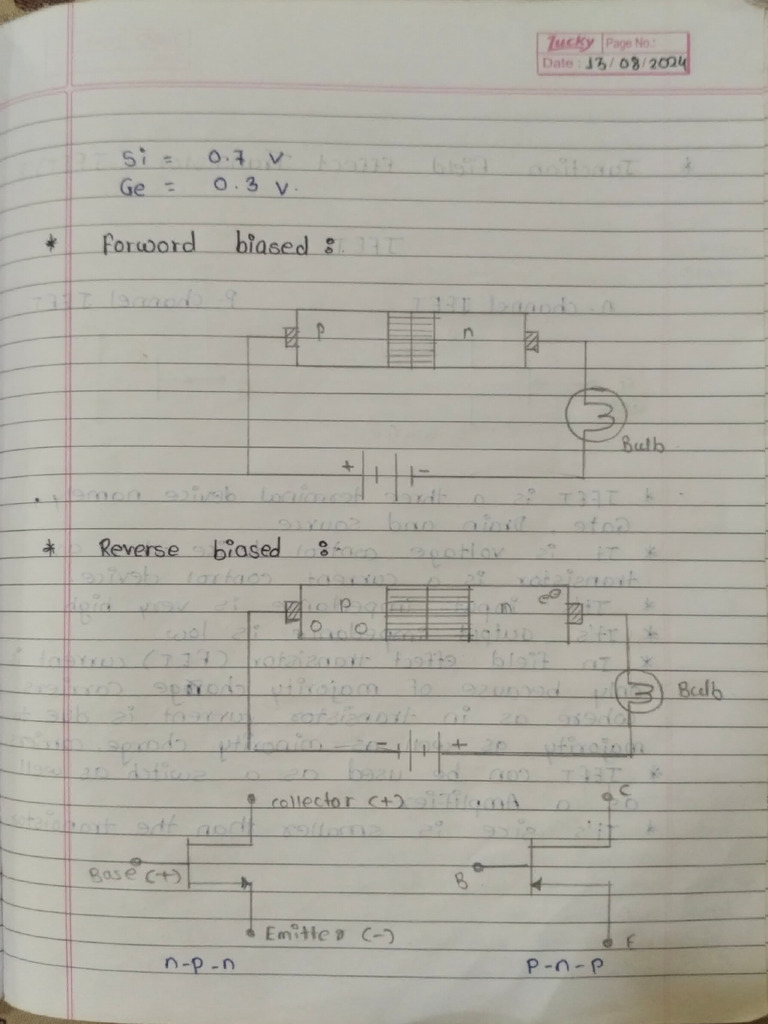 Lucky Page No.:
Date : 13/08/2024
Si = 0.7 V
Ge = 0.3 V.
* Forword biased :
p n
+ -
Bulb
* Reverse biased :
p n
Bulb
- +
collector (+) C
Base (+) B
Emitter (-) E
n-p-n P-n-P